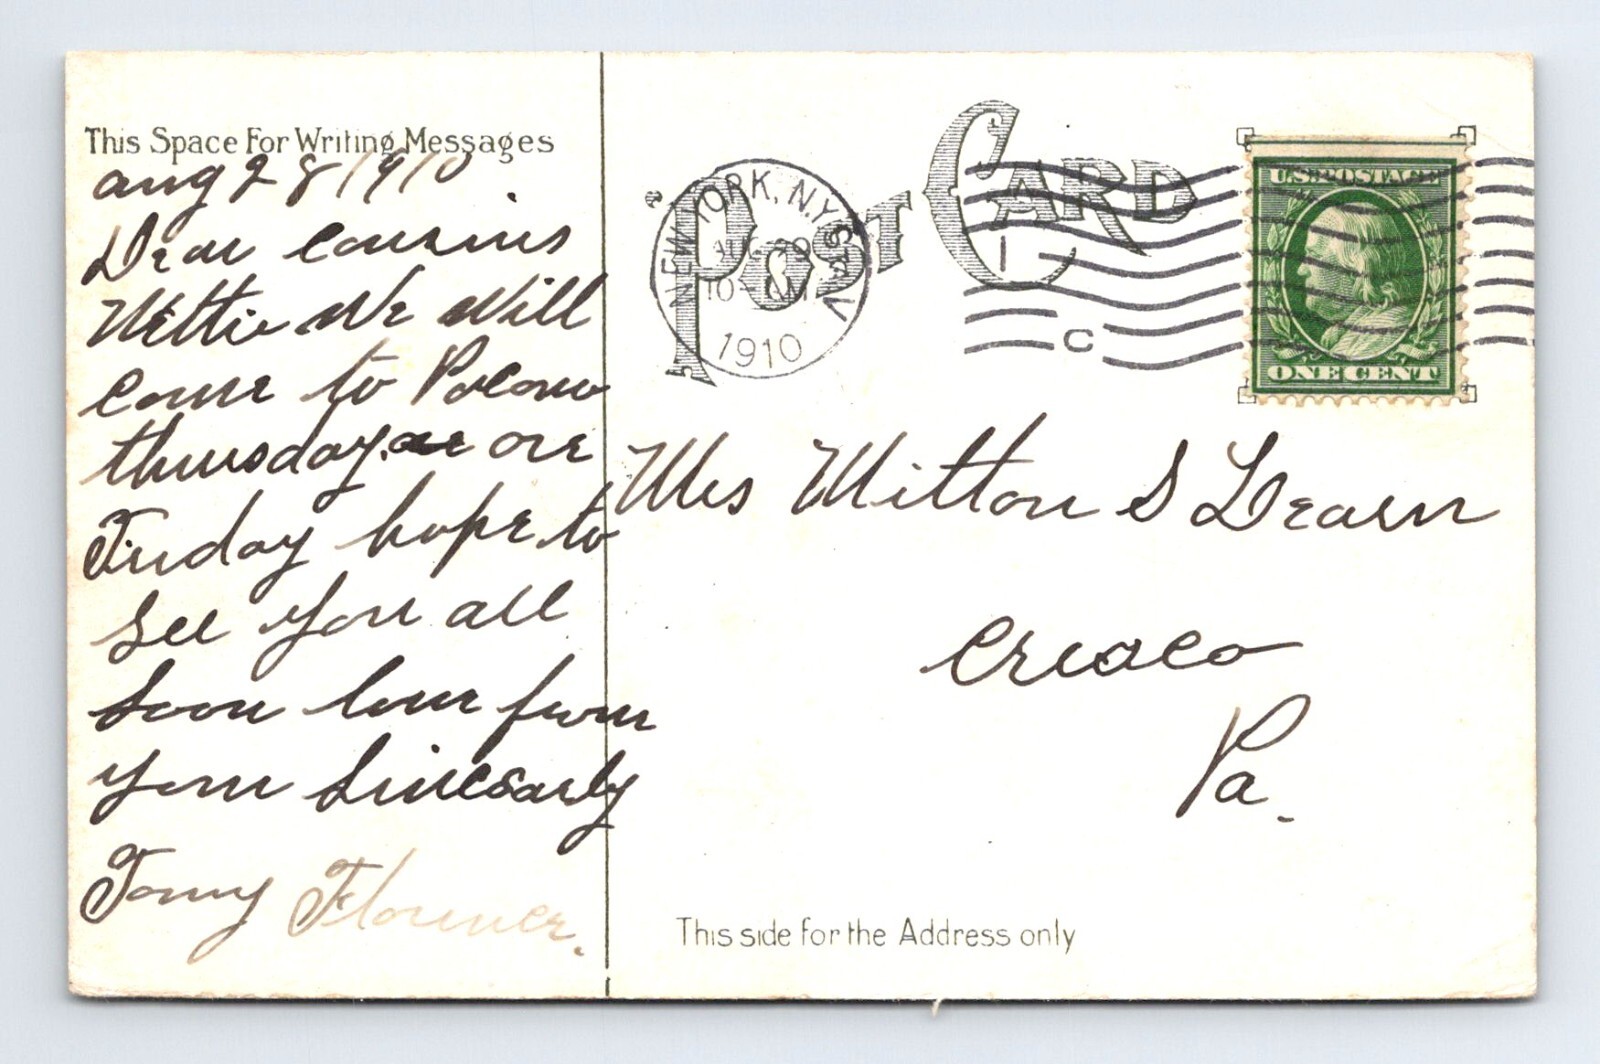 This Space For Writing Messages
aug 28 1910
Dear Cousins
Nettie We Will
Come to Pocono
thursday ore
Friday hope to
See you all
Soon love from
your Sincearly
Tomy Florence.
POST CARD
NEW YORK, N.Y. STA. V
1910
C
U.S. POSTAGE
ONE CENT
Mrs Milton S Learn
Cresco
Pa.
This side for the Address only